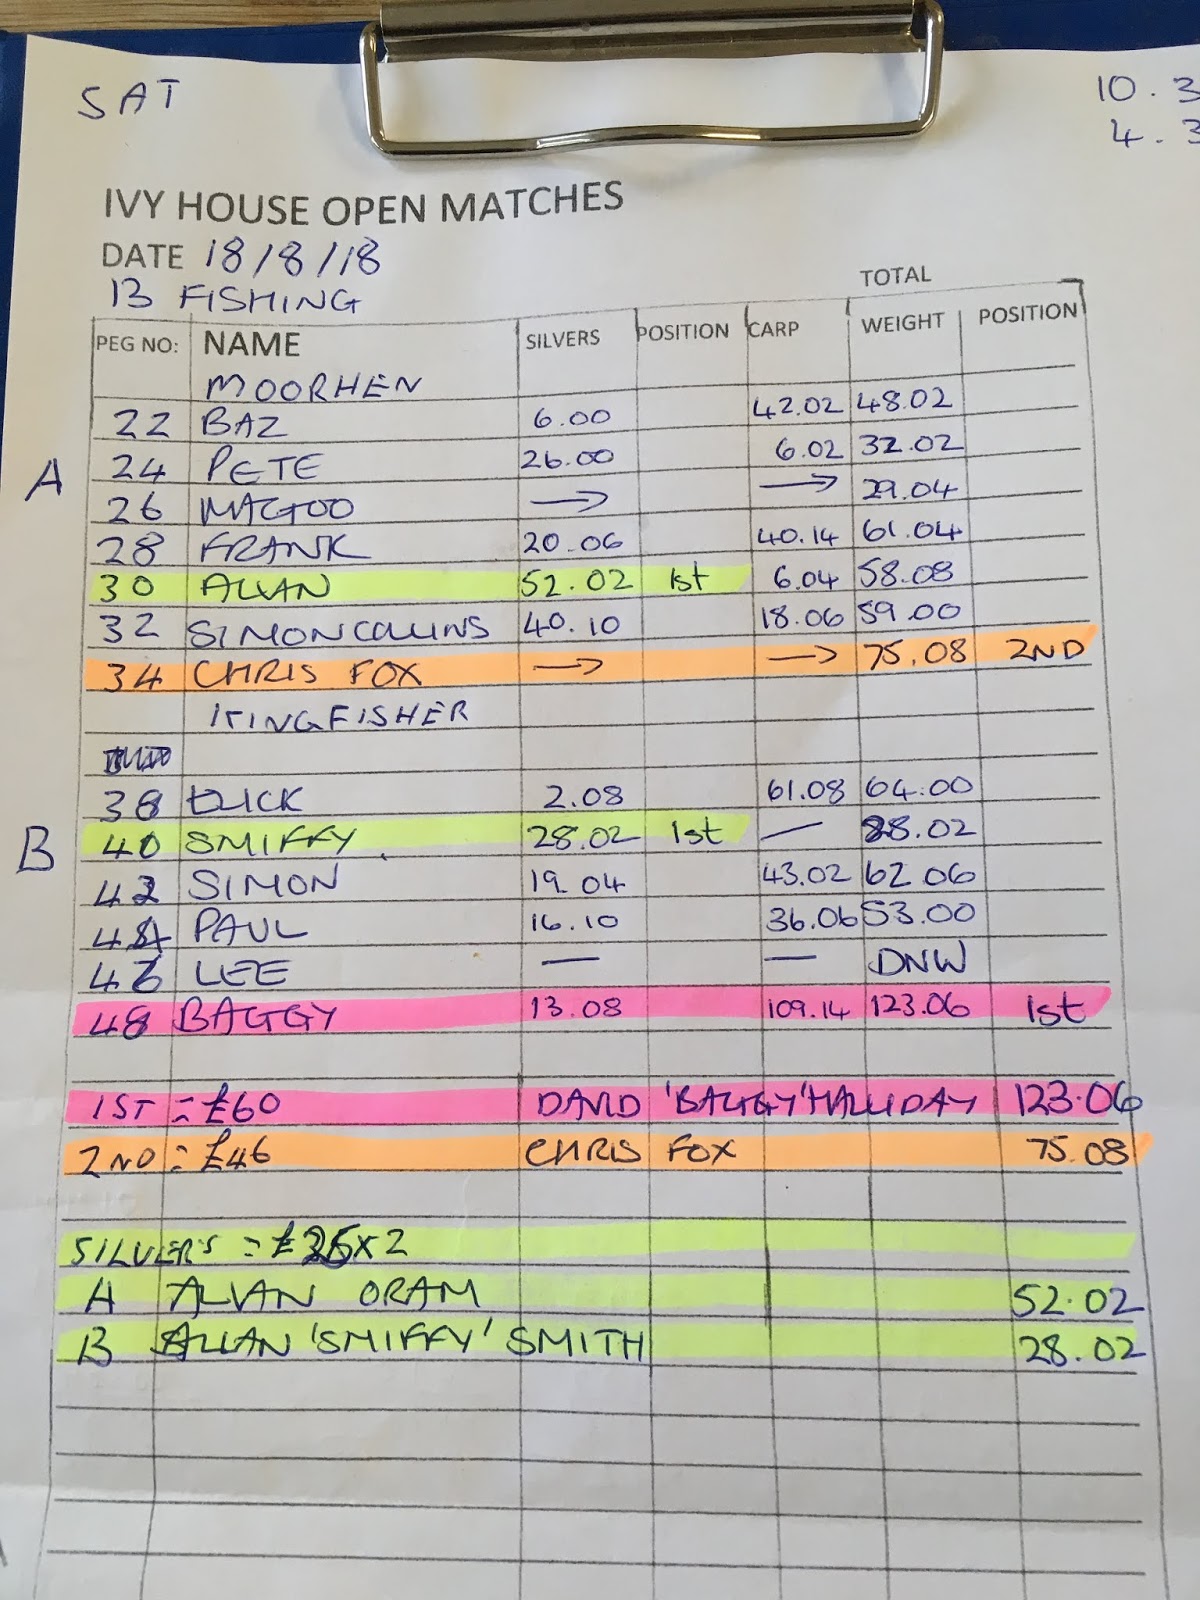 SAT
10.3
4.3
IVY HOUSE OPEN MATCHES
DATE 18/8/18
13 FISHING
TOTAL
PEG NO: NAME SILVERS POSITION CARP WEIGHT POSITION
MOORHEN
22 BAZ 6.00 42.02 48.02
A
24 PETE 26.00 6.02 32.02
26 MAGOO → → 29.04
28 FRANK 20.06 40.14 61.04
30 ALLAN 52.02 1st 6.04 58.08
32 SIMON COLLINS 40.10 18.06 59.00
34 CHRIS FOX → → 75.08 2ND
KINGFISHER
38 DICK 2.08 61.08 64.00
B
40 SMIFFY 28.02 1st — 28.02
42 SIMON 19.04 43.02 62.06
44 PAUL 16.10 36.06 53.00
46 LEE — — DNW
48 BAGGY 13.08 109.14 123.06 1st
1ST = £60 DAVID 'BAGGY' HALLIDAY 123.06
2ND = £46 CHRIS FOX 75.08
SILVERS = x2
A ALLAN ORAM 52.02
B ALLAN 'SMIFFY' SMITH 28.02